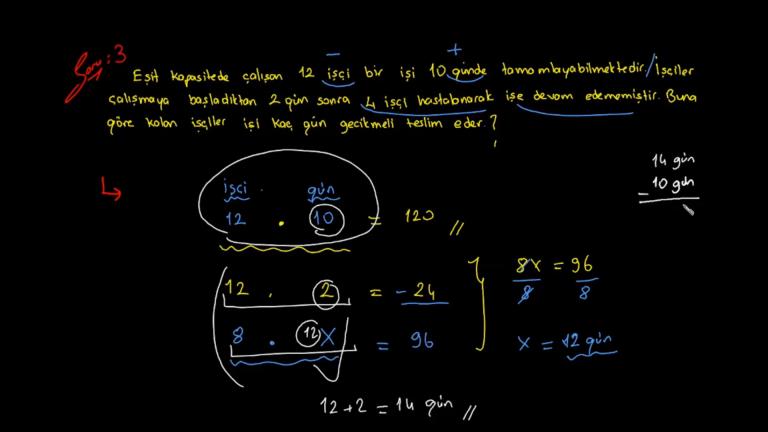 Soru:3
− +
Eşit kapasitede çalışan 12 işçi bir işi 10 günde tamamlayabilmektedir. İşçiler
çalışmaya başladıktan 2 gün sonra 4 işçi hastalanarak işe devam edememiştir. Buna
göre kalan işçiler işi kaç gün gecikmeli teslim eder?
14 gün
− 10 gün
işçi gün
12 . 10 = 120 //
12 . 2 = − 24
8x = 96
8 8
8 . 12 x = 96
x = 12 gün
12 + 2 = 14 gün //